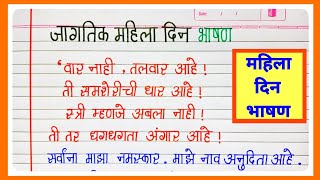 जागतिक महिला दिन भाषण
"वार नाही , तलवार आहे !
ती समशेरीची धार आहे !
स्त्री म्हणजे अबला नाही !
ती तर धगधगता अंगार आहे !
सर्वांना माझा नमस्कार . माझे नाव अनुदिता आहे .
महिला
दिन
भाषण